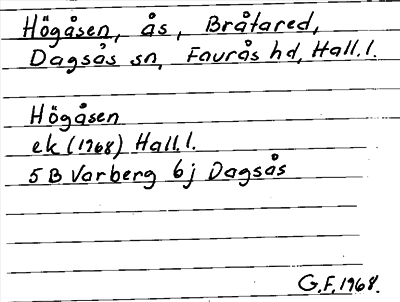 Högåsen, ås, Bråtared,
Dagsås sn, Faurås hd, Hall.l.
Högåsen
ek (1968) Hall.l.
5 B Varberg 6j Dagsås
G.F. 1968.